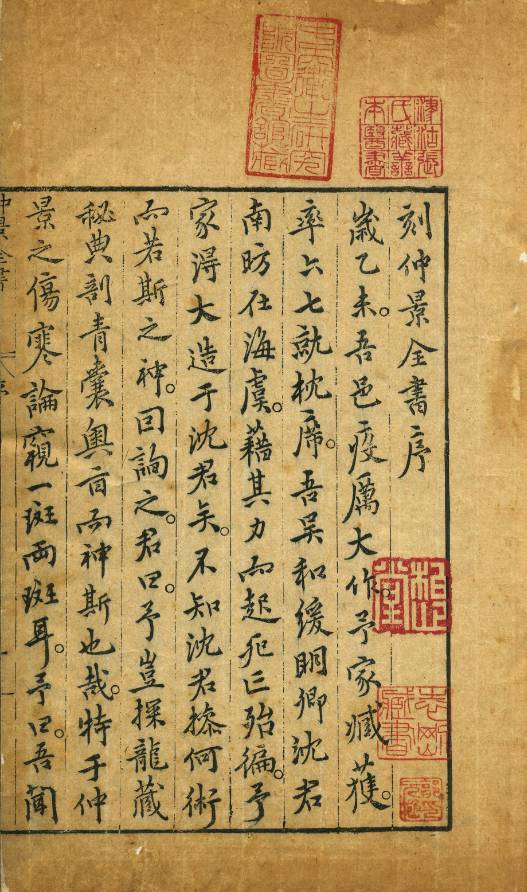 津沽張
氏藏善
本醫書
刻仲景全書序
歲乙未。吾邑疫厲大作。予家臧獲。
率六七就枕席。吾吳和緩明卿沈君
南昉在海虞。藉其力而起死亡殆徧。予
家得大造于沈君矣。不知沈君操何術
而若斯之神。因詢之。君曰。予豈探龍藏
秘典剖青囊奧旨而神斯也哉。特于仲
景之傷寒論窺一斑兩斑耳。予曰。吾聞
仲景全書
序